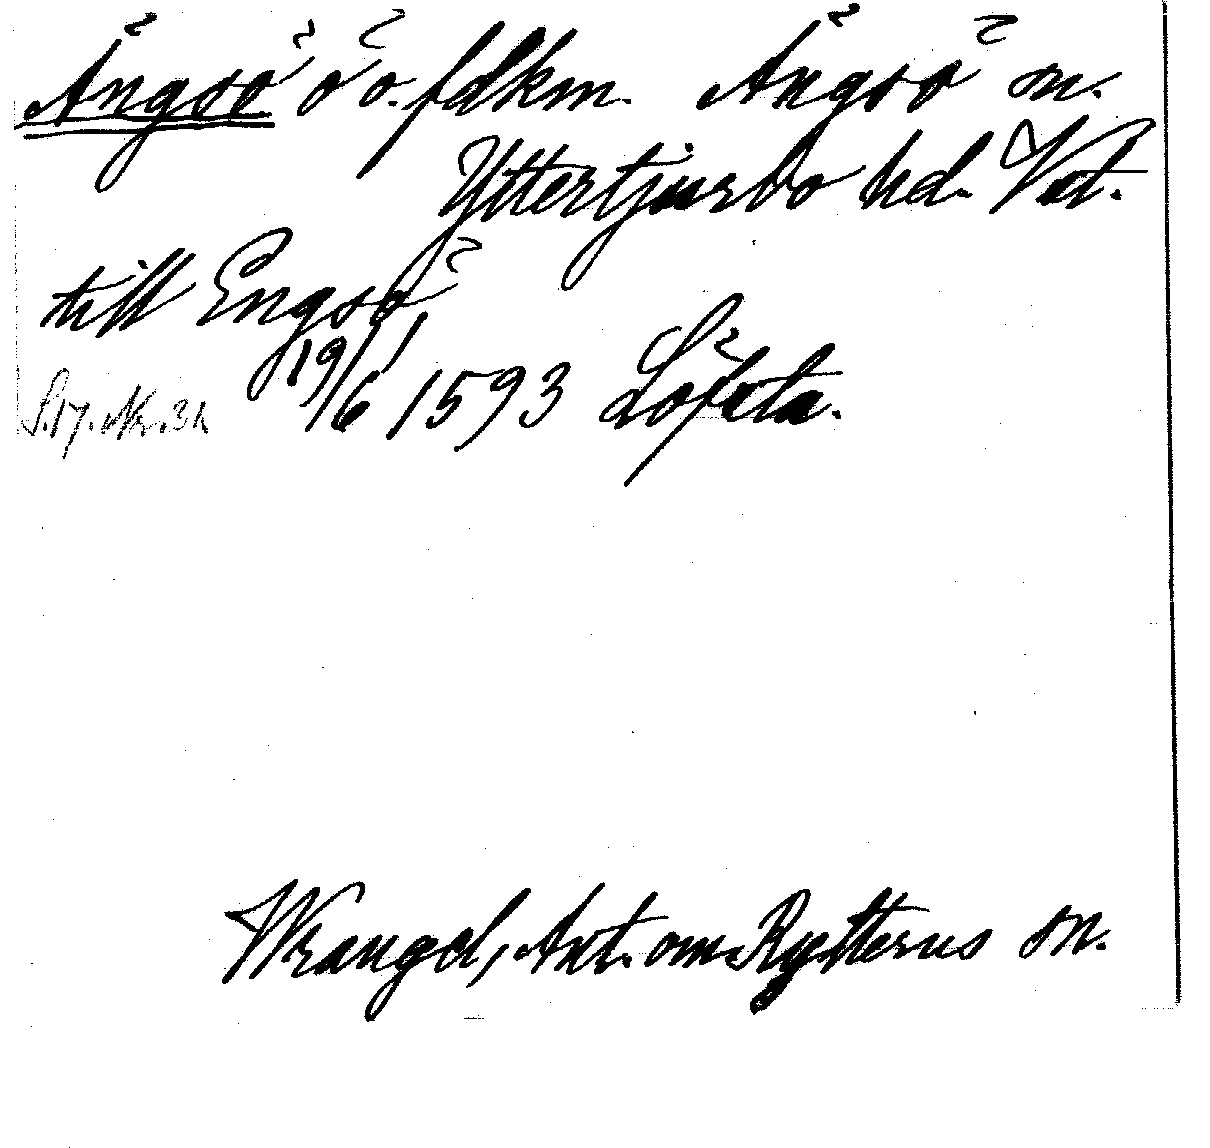 Ängsö ö o. fdkm. Ängsö sn.
Yttertjurbo hd. Vstm.
till Engsö
19/6 1593 Löfsta.
S. 17. Nr. 31
Wrangel, Ant. om Rytterns sn.